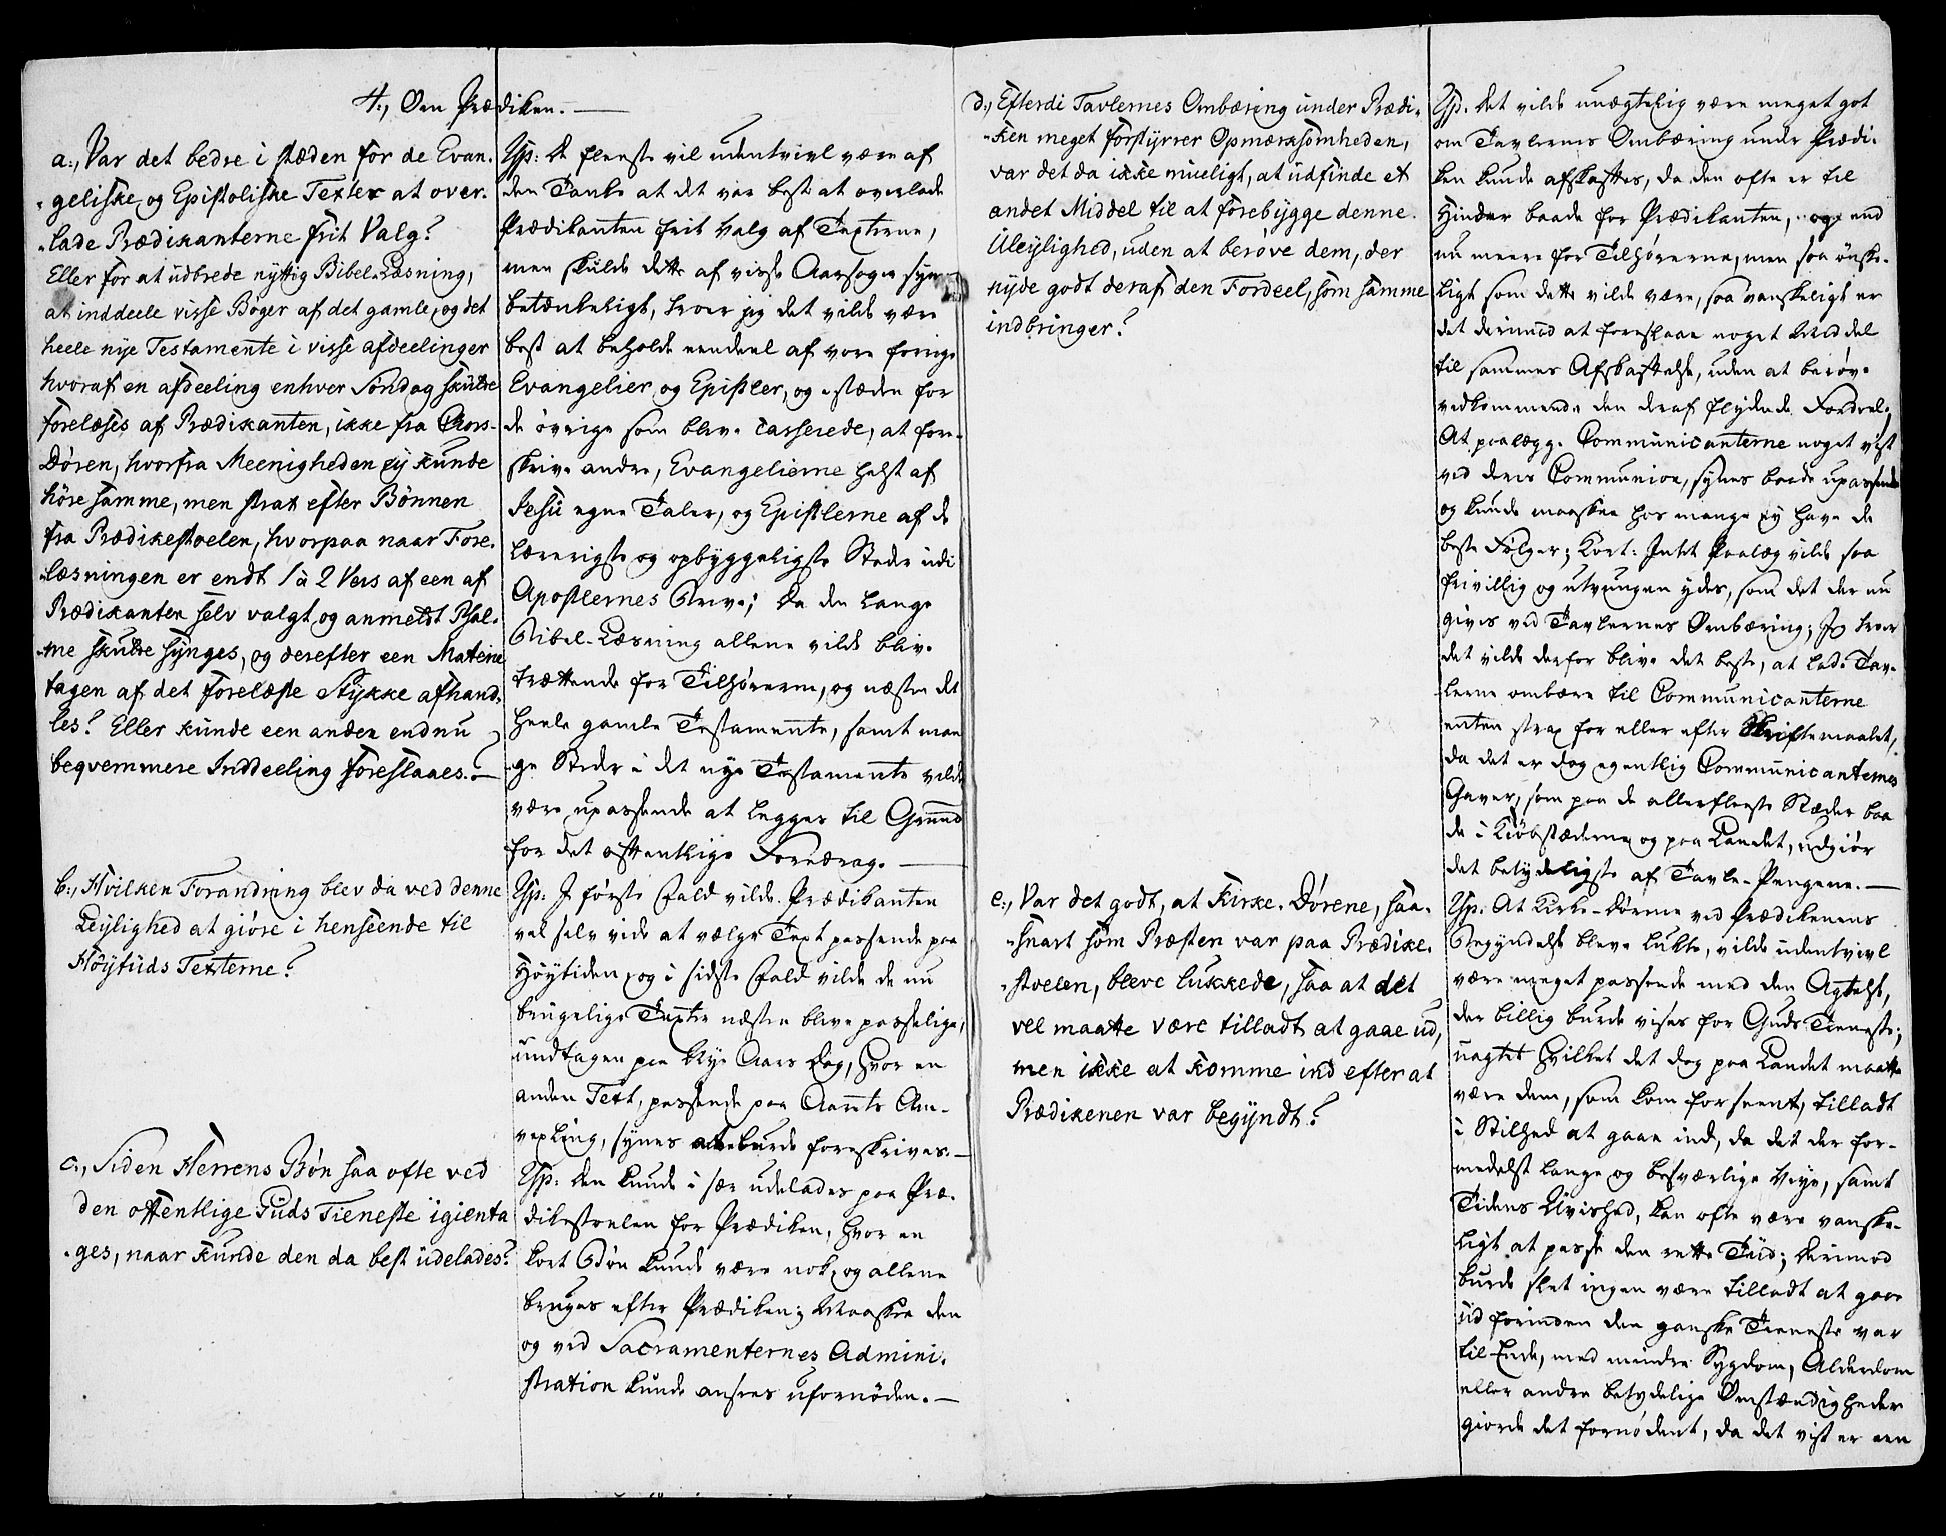 4., Om Prædiken. —
a., Var det bedre i stæden for de Evan-
geliske og Epistoliske Texter at over-
lade Prædikanterne frit Valg?
Eller for at udbrede nyttig Bibel-Læsning,
at inddeele visse Bøger af det gamle, og det
heele nye Testamente i visse afdeelinger
hvoraf en afdeeling enhver Søndag skulde
forelæses af Prædikanten, ikke fra Chors-
Døren, hvorfra Meenigheden ey kunde
høre samme, men strax efter Bønnen
fra Prædikestoelen, hvorpaa naar Fore-
læsningen er endt 1 à 2 Vers af een af
Prædikanten selv valgt og anmeldt Psal-
me skulde synges, og derefter een Materie
tagen af det forelæste Stykke afhand-
les? Eller kunde een anden endnu
beqvemmere Inddeeling foreslaaes. —
Rsp: De fleeste vil udentvivl være af
den Tanke at det var best at overlade
Prædikanten frit Valg af Texterne,
men skulde dette af visse Aarsager synes
betænkeligt, troer jeg det vilde være
best at beholde eendeel af vore forrige
Evangelier og Epistler, og i stæden for
de øvrige som bleve casserede, at fore-
skrive andre, Evangelierne helst af
Jesu egne Taler, og Epistlerne af de
lærerigste og opbyggeligste Steder udi
Apostlernes Breve; Da den lange
Bibel-Læsning allene vilde blive
trættende for Tilhørerne, og næsten det
heele gamle Testamente, samt man-
ge Steder i det nye Testamente vilde
være upassende at legges til Grund
for det offentlige Foredrag. —
b., Hvilken Forandring blev da ved denne
Leylighed at giøre i henseende til
Høytids Texterne?
Rsp: I første Fald vilde Prædikanten
vel selv vide at vælge Text passende paa
Høytiden, og i sidste Fald vilde de nu
brugelige Texter næsten blive passelige,
undtagen paa Nye Aars Dag, hvor en
anden Text, passende paa Aarets Om-
vexling, synes at burde foreskrives. —
c., Siden Herrens Bøn saa ofte ved
den offentlige Guds Tieneste igienta
ges, naar kunde den da best udelades?
Rsp: Den kunde i sær udelades paa Præ-
dikestoelen for Prædiken, hvor en
kort Bøn kunde være nok, og allene
bruges efter Prædiken; Maaskee den
og ved Sacramenternes Admini-
stration kunde ansees ufornøden. —
d., Efterdi Tavlernes Ombæring under Prædi-
ken meget forstyrrer Opmærksomheden,
var det da ikke mueligt, at udfinde et
andet Middel til at forebygge denne
Uleylighed, uden at berøve dem, der
nyde godt deraf den Fordeel, som samme
indbringer?
Rsp: Det vilde unægtelig være meget got
om Tavlernes Ombæring under Prædi-
ken kunde afskaffes, da den ofte er til
Hinder baade for Prædikanten, og end
nu meere for Tilhørerne, men saa ønske-
ligt som dette vilde være, saa vanskeligt er
det derimod at foreslaae noget Middel
til sammes Afskaffelse, uden at berøve
vedkommende den deraf flydende Fordeel,
At paalægge Communicanterne noget vist
ved deres Communion, synes baade upassende
og kunde maaskee hos mange ey have de
beste Følger; Kort: Intet Paalæg vilde saa
frivillig og utvungen ydes, som det der nu
gives ved Tavlernes Ombæring; Jeg troer
det vilde derfor blive det beste, at lade Tav-
lerne ombære til Communicanterne
enten strax for eller efter Skriftemaalet,
da det er dog egentlig Communicanternes
Gaver, som paa de allerfleeste Stæder baa
de i Kiøbstæderne og paa Landet, udgiør
det betydeligste af Tavle-Pengene. —
e., Var det godt, at Kirke-Dørene, saa-
snart som Præsten var paa Prædike-
stoelen, bleve lukkede, saa at det
vel maatte være tilladt at gaae ud,
men ikke at komme ind efter at
Prædikenen var begyndt?
Rsp: At Kirke-Dørene ved Prædikenens
Begyndelse bleve lukte, vilde udentvivl
være meget passende med den Agtelse,
der billig burde vises for Guds Tieneste;
uagtet hvilket det dog paa Landet maatte
være dem, som kom for seent, tilladt
i Stilhed at gaae ind, da det der for-
medelst lange og besværlige Veye, samt
Tidens Uvished, kan ofte være vanske-
ligt at passe den rette Tiid; Derimod
burde slet ingen være tilladt at gaae
ud forinden den ganske Tieneste var
til Ende, med mindre Sygdom, Alderdom
eller andre betydelige Omstændigheder
giorde det fornødent, da det vist er een